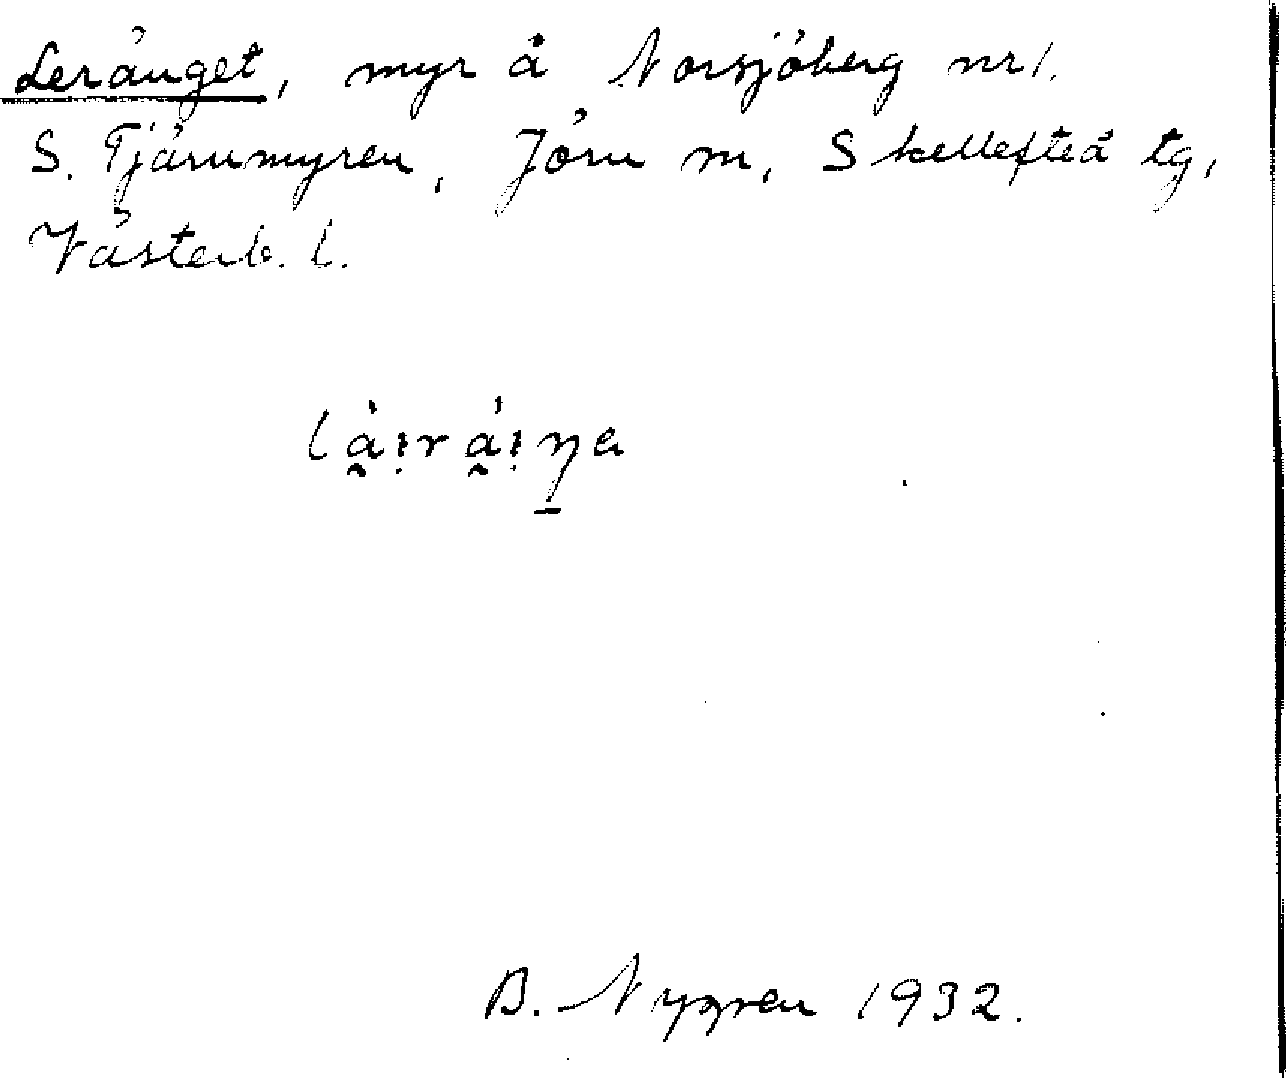 Leränget, myr å Norsjöberg nr 1.
S. Tjärnmyren, Jörn m, Skellefteå tg,
Västerb. l.
lä̰꞉rä̰꞉ŋ̱a
B. Nygren 1932.